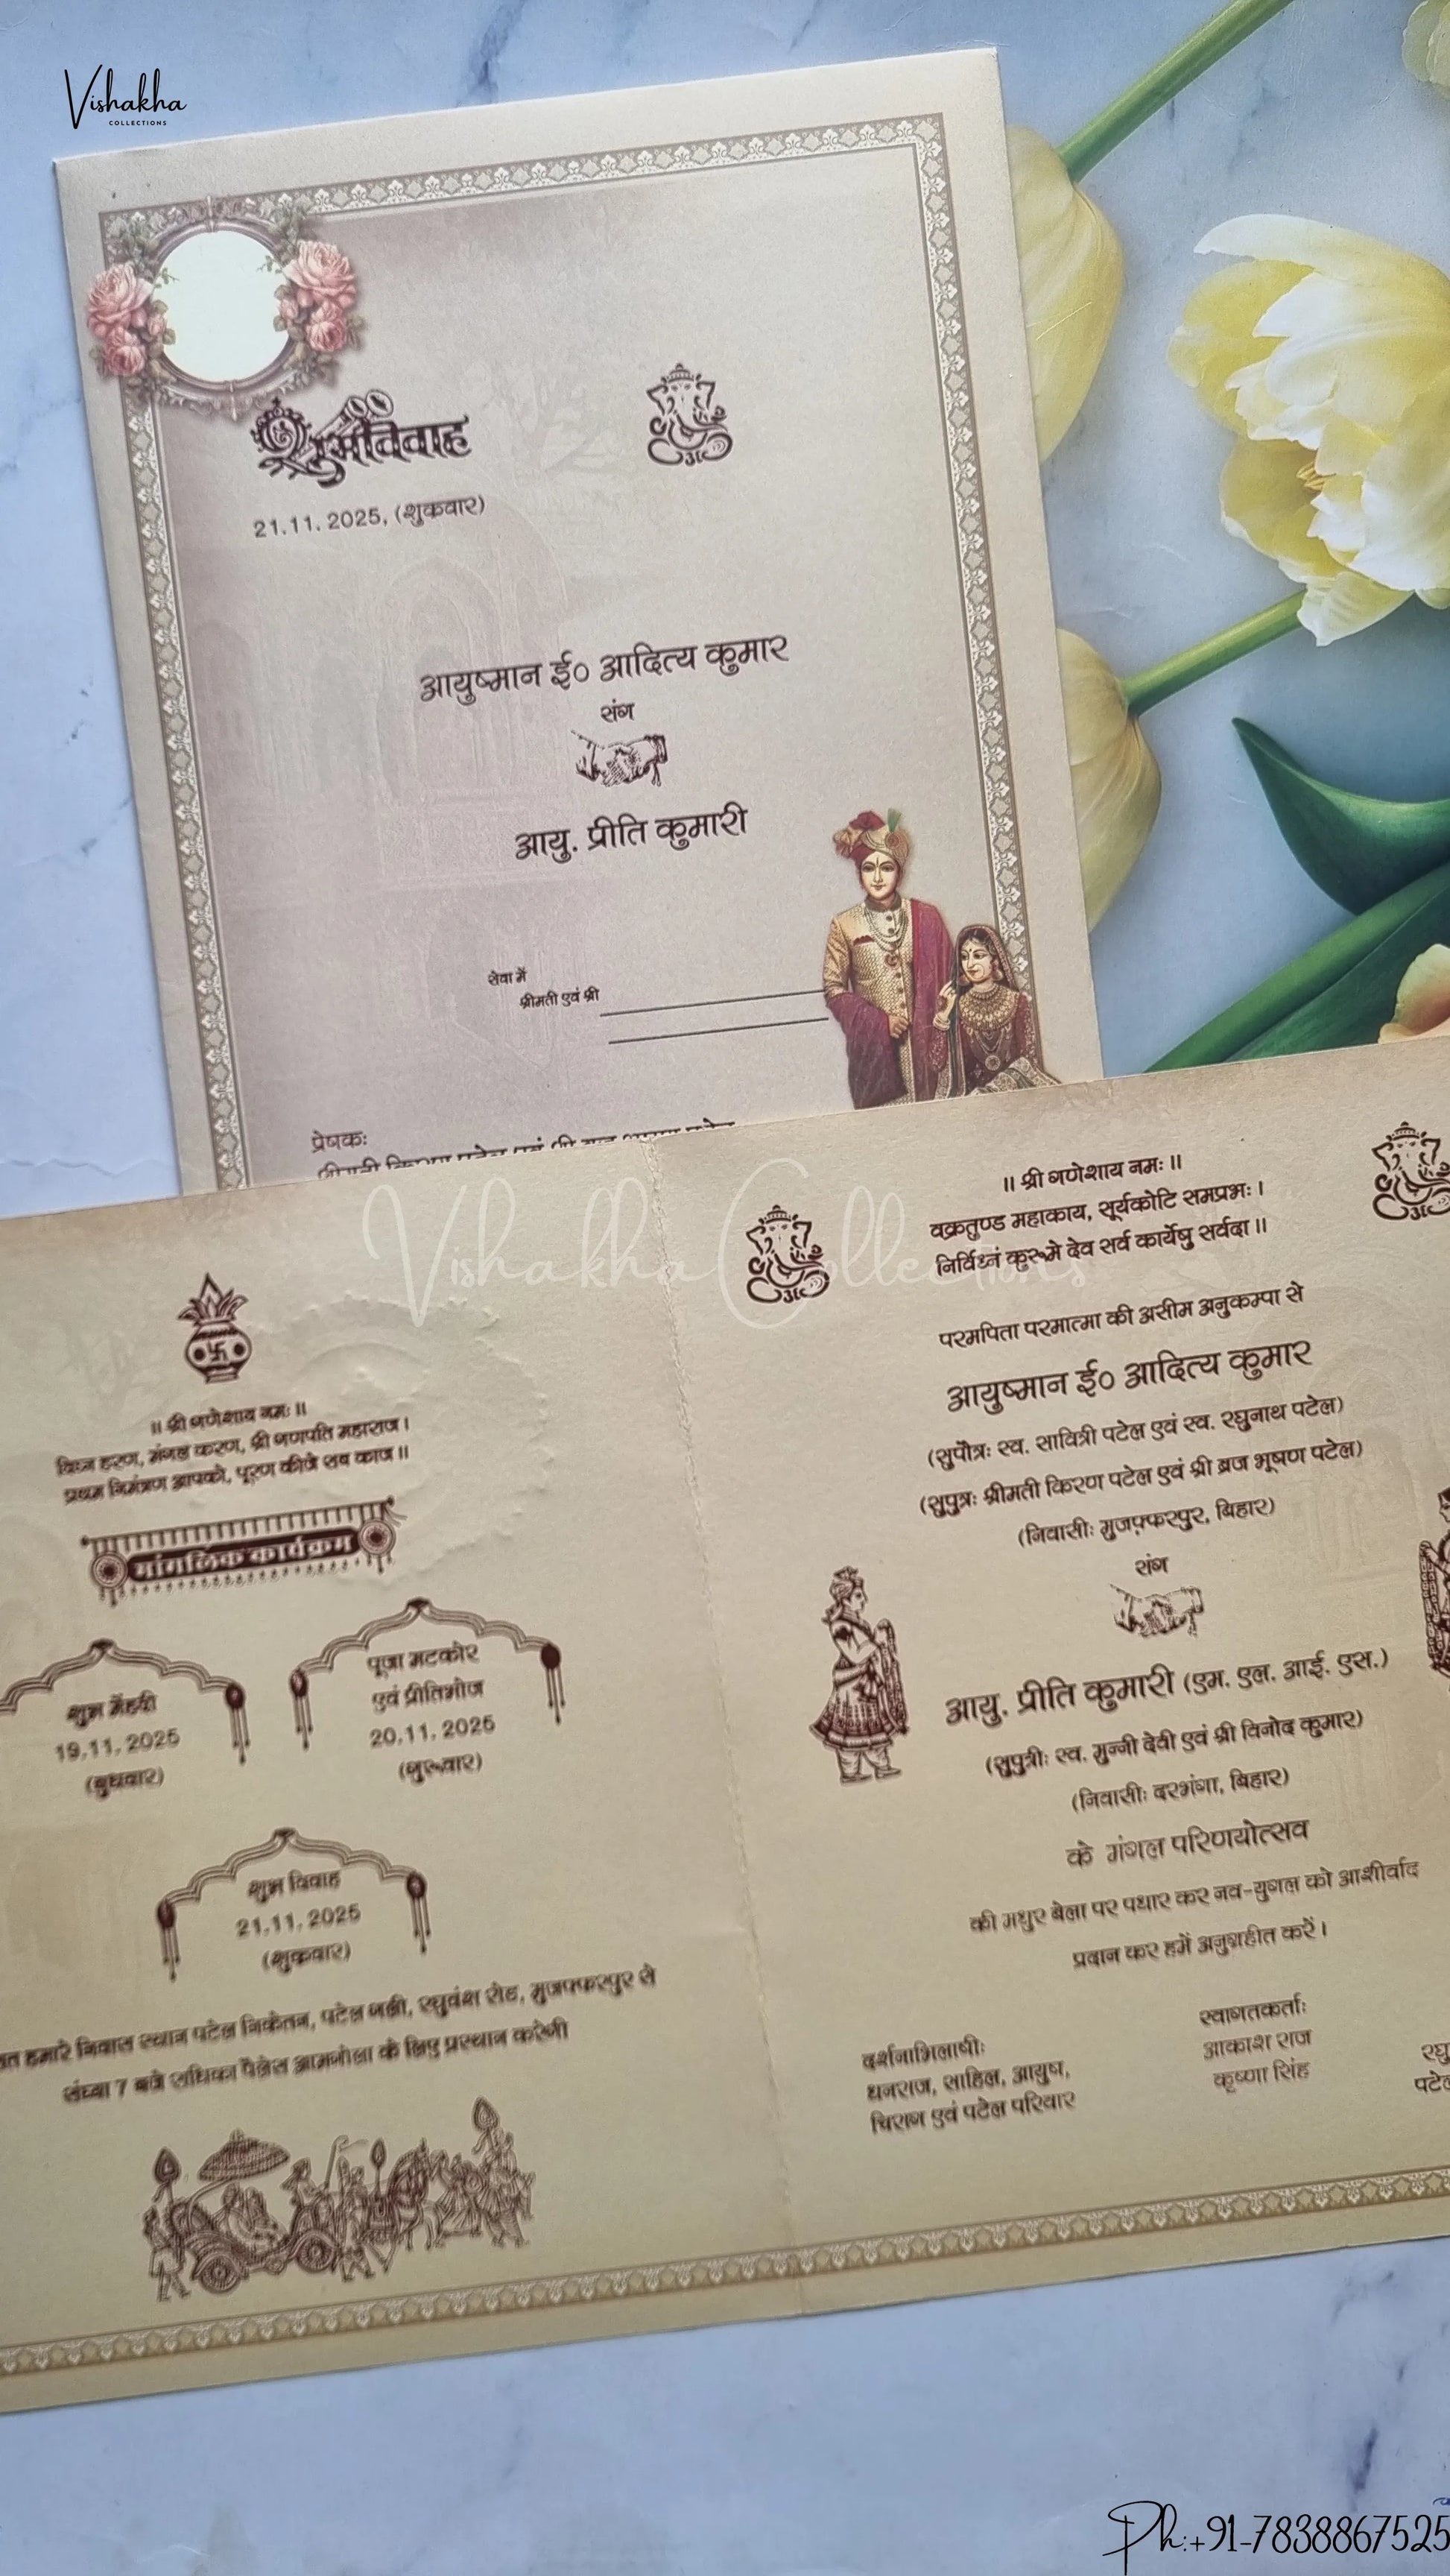 Vishakha
COLLECTIONS
शुभ विवाह
21.11.2025, (शुक्रवार)
आयुष्मान ई० आदित्य कुमार
संग
आयु. प्रीति कुमारी
सेवा में
श्रीमती एवं श्री
प्रेषकः
श्रीमती किरण पटेल एवं श्री ब्रज भूषण पटेल
Vishakha Collections
॥ श्री गणेशाय नमः ॥
विघ्न हरण, मंगल करण, श्री गणपति महाराज।
प्रथम निमंत्रण आपको, पूरण कीजै सब काज॥
मांगलिक कार्यक्रम
शुभ मेंहदी
19.11.2025
(बुधवार)
पूजा मटकोर
एवं प्रीतिभोज
20.11.2025
(गुरूवार)
शुभ विवाह
21.11.2025
(शुक्रवार)
हमारे निवास स्थान पटेल निकेतन, पटेल गली, रघुवंश रोड, मुजफ्फरपुर से
संध्या 7 बजे राधिका पैलेस आमगोला के लिए प्रस्थान करेगी
॥ श्री गणेशाय नमः ॥
वक्रतुण्ड महाकाय, सूर्यकोटि समप्रभः।
निर्विध्नं कुरूमे देव सर्व कार्येषु सर्वदा॥
परमपिता परमात्मा की असीम अनुकम्पा से
आयुष्मान ई० आदित्य कुमार
(सुपौत्रः स्व. सावित्री पटेल एवं स्व. रघुनाथ पटेल)
(सुपुत्रः श्रीमती किरण पटेल एवं श्री ब्रज भूषण पटेल)
(निवासीः मुजफ़्फरपुर, बिहार)
संग
आयु. प्रीति कुमारी (एम. एल. आई. एस.)
(सुपुत्रीः स्व. मुन्नी देवी एवं श्री विनोद कुमार)
(निवासीः दरभंगा, बिहार)
के मंगल परिणयोत्सव
की मधुर बेला पर पधार कर नव-युगल को आशीर्वाद
प्रदान कर हमें अनुग्रहीत करें।
दर्शनाभिलाषीः
धनराज, साहिल, आयुष,
चिराग एवं पटेल परिवार
स्वागतकर्ताः
आकाश राज
कृष्णा सिंह
Ph:+91-7838867525